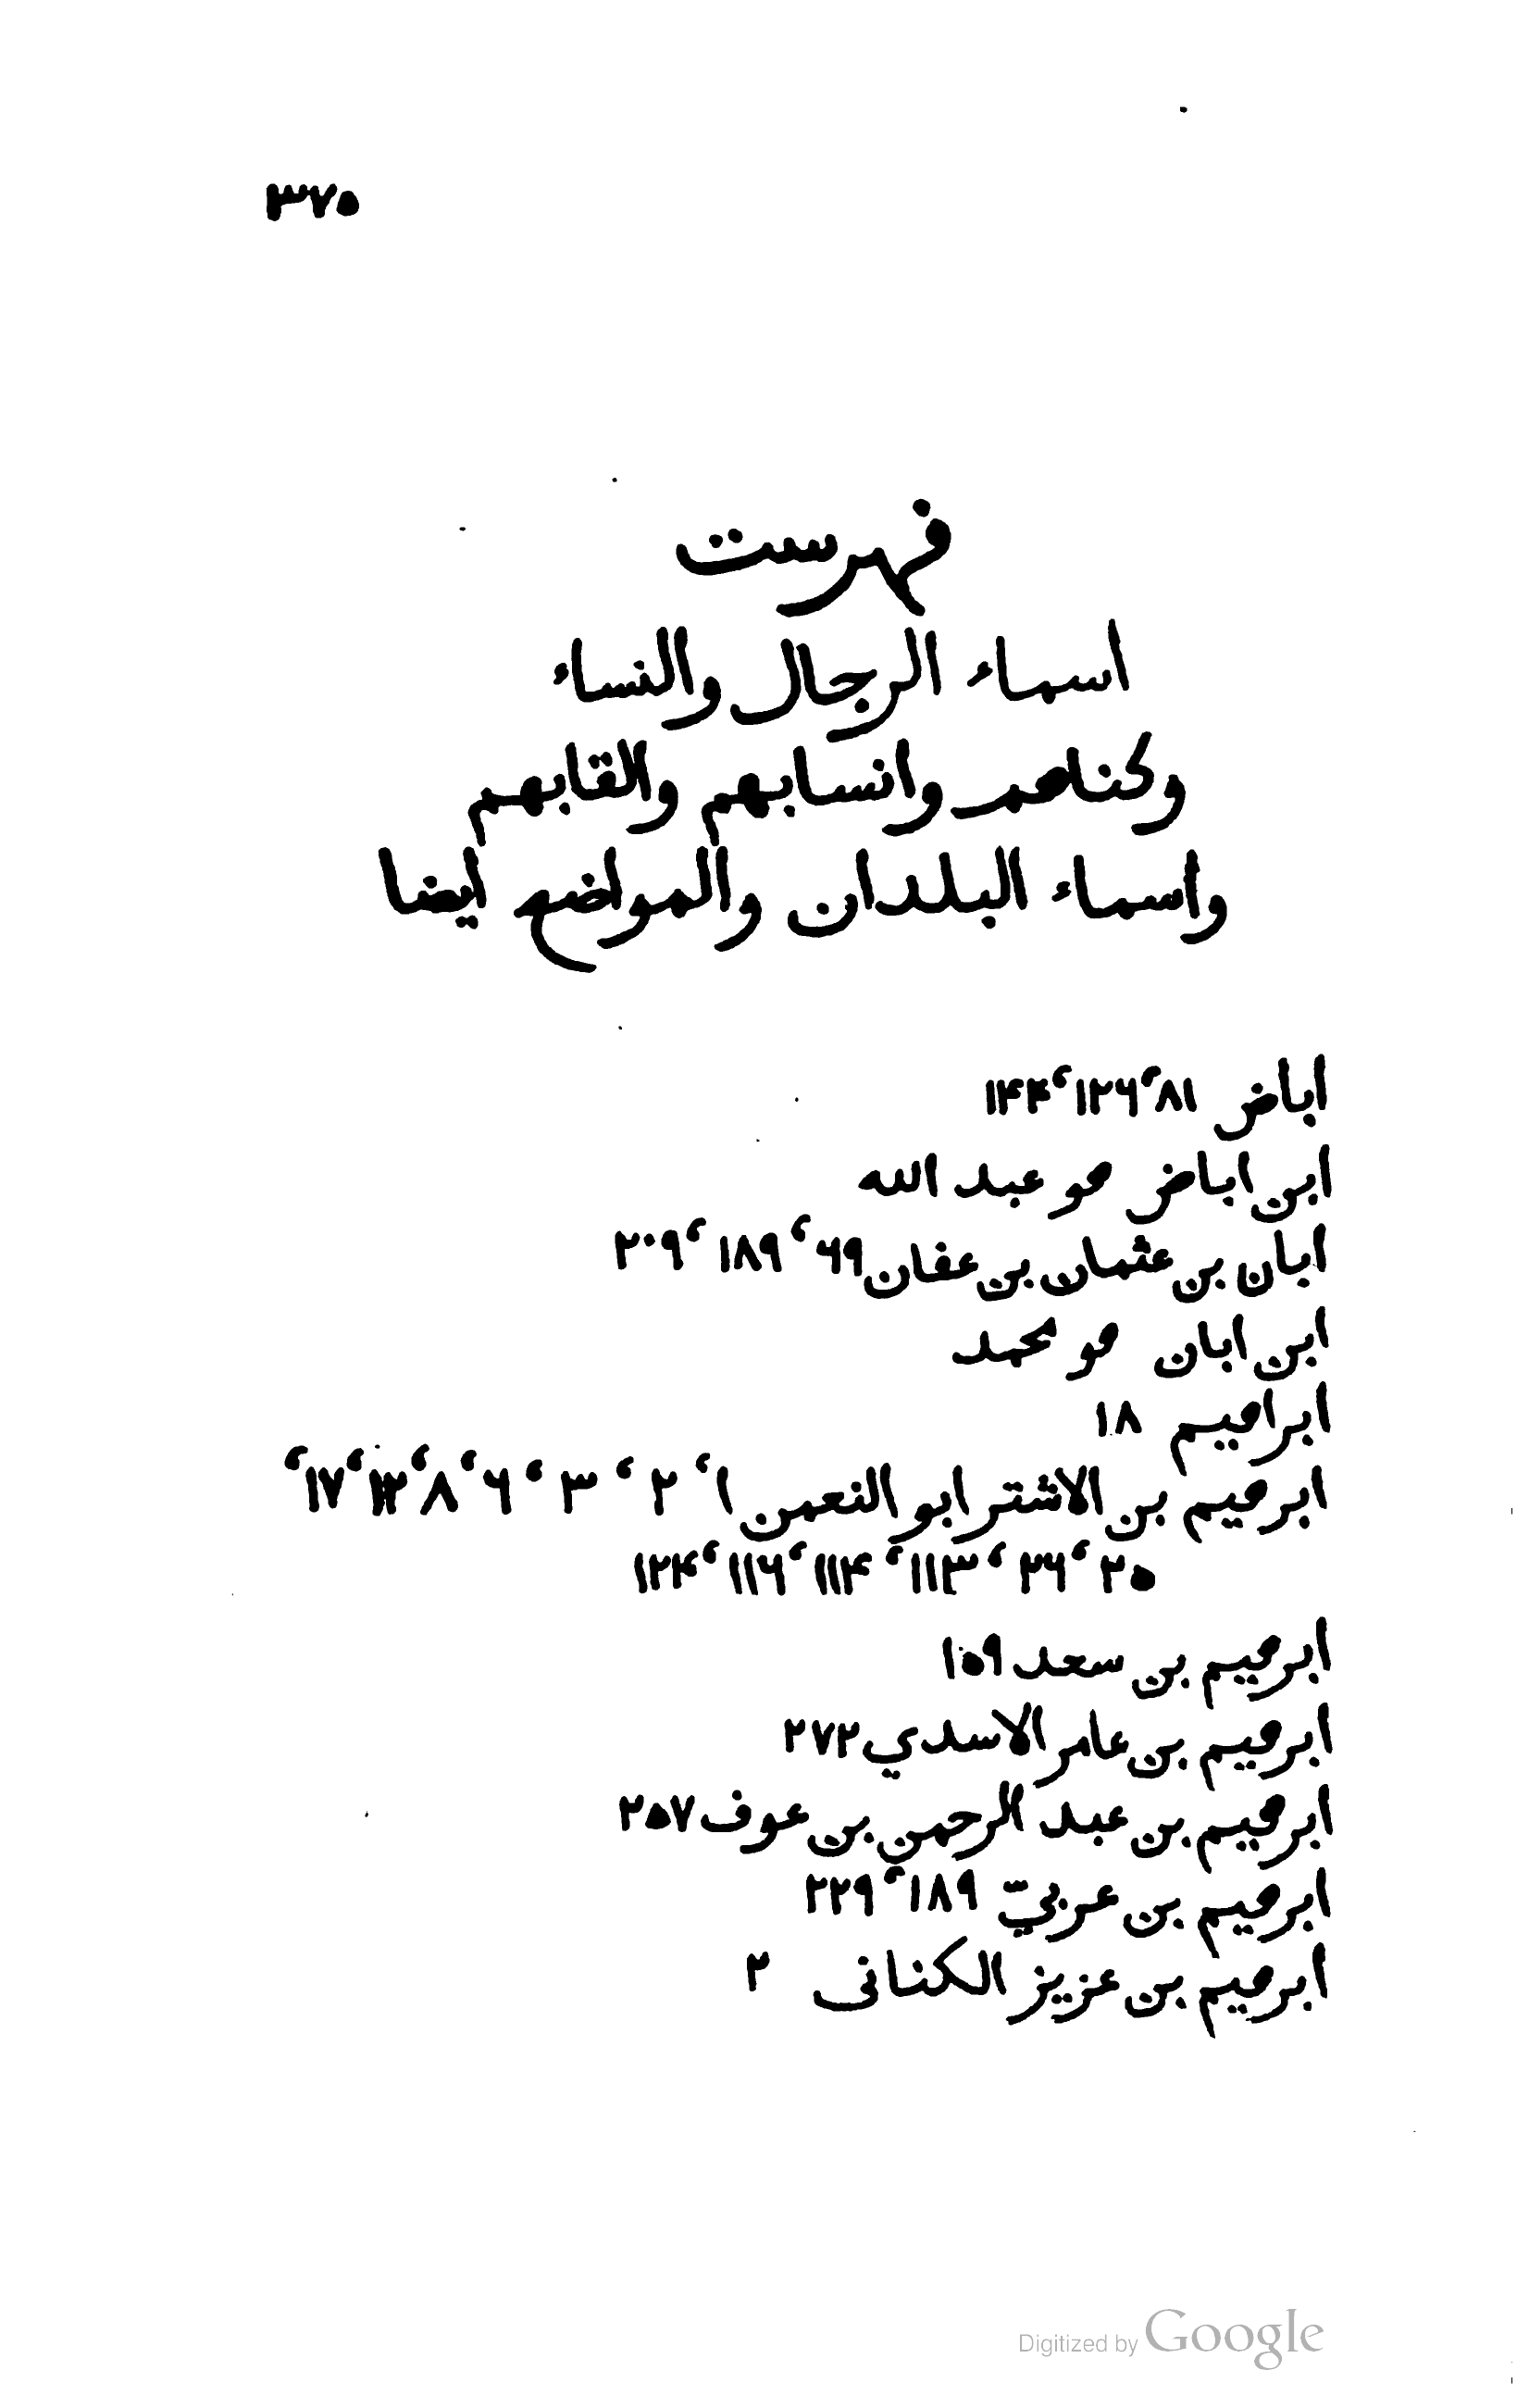 ٣٧٥
فهرست
اسماء الرجال والنساء
وكناهم وانسابهم والقابهم
واسماء البلدان والمواضع ايضا
اباض ٨١، ١٢٦، ١٤٤
ابن اباض هو عبد الله
ابان بن عثمان بن عفان ٦٩، ١٨٩، ٢٠٩
ابن ابان هو محمد
ابراهيم ١٨
ابرهيم بن الاشتر ابو النعمن ١، ٢، ٣، ٦، ٨، ١٣، ١٧،
٢٥، ٣٦، ١١٣، ١١٤، ١١٦، ١٢٤
ابرهيم بن سعد ١٥٩
ابرهيم بن عامر الاسدي ٢٧٢
ابرهيم بن عبد الرحمن بن عوف ٢٥٧
ابرهيم بن عربيّ ١٨٩، ٢٢٩
ابرهيم بن عزيز الكنانى ٢
Digitized by Google